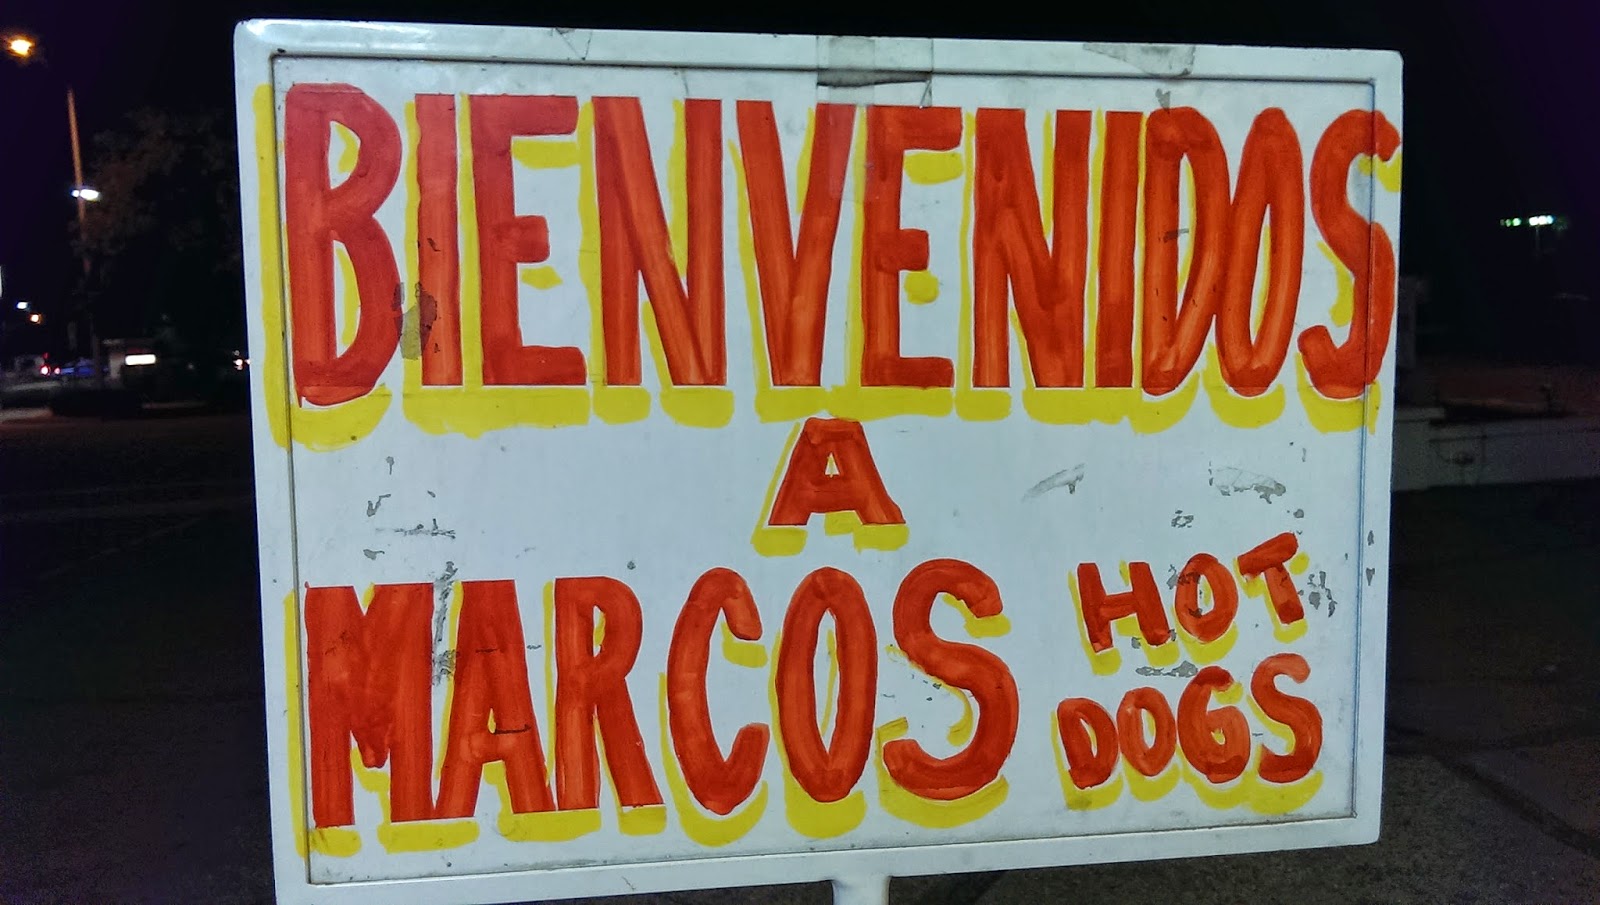 BIENVENIDOS
A
MARCOS HOT
DOGS